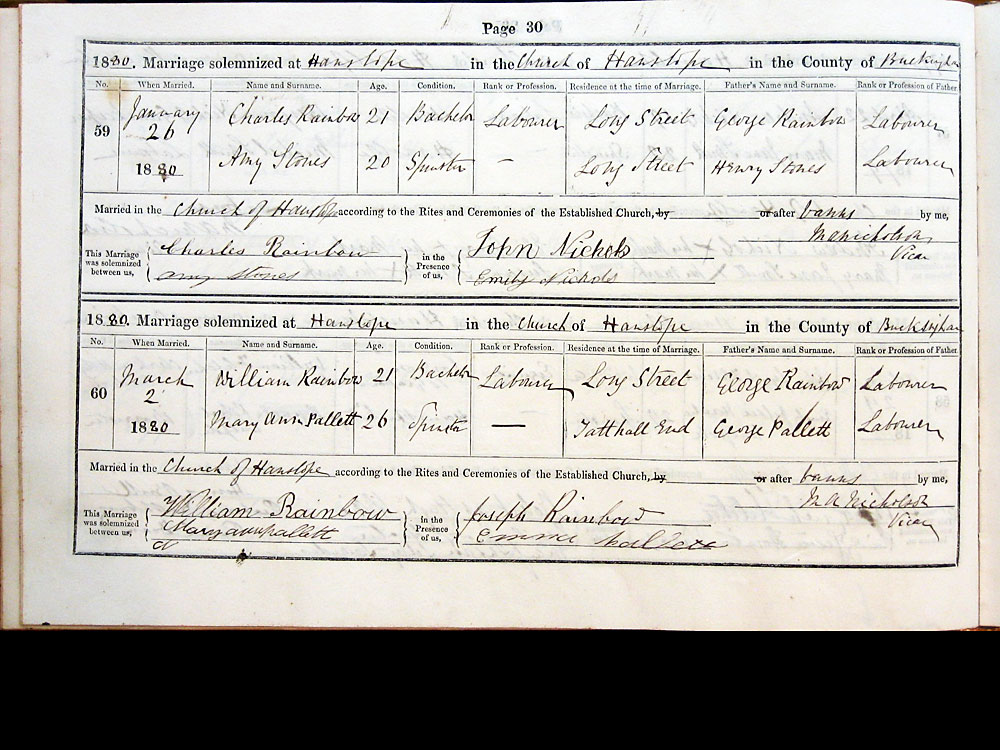 Page 30
1880. Marriage solemnized at Hanslope in the Church of Hanslope in the County of Buckingham
No. When Married. Name and Surname. Age. Condition. Rank or Profession. Residence at the time of Marriage. Father's Name and Surname. Rank or Profession of Father.
59 January 26 1880 Charles Rainbow 21 Bachelor Labourer Long Street George Rainbow Labourer
Amy Stones 20 Spinster — Long Street Henry Stones Labourer
Married in the Church of Hanslope according to the Rites and Ceremonies of the Established Church, by or after banns by me,
M A Nicholson
Vicar
This Marriage was solemnized between us, Charles Rainbow in the Presence of us, John Nichols
Amy Stones Emily Nichols
1880. Marriage solemnized at Hanslope in the Church of Hanslope in the County of Buckingham
No. When Married. Name and Surname. Age. Condition. Rank or Profession. Residence at the time of Marriage. Father's Name and Surname. Rank or Profession of Father.
60 March 2 1880 William Rainbow 21 Bachelor Labourer Long Street George Rainbow Labourer
Mary Ann Pallett 26 Spinster — Tatthall End George Pallett Labourer
Married in the Church of Hanslope according to the Rites and Ceremonies of the Established Church, by or after banns by me,
M A Nicholson
Vicar
This Marriage was solemnized between us, William Rainbow in the Presence of us, Joseph Rainbow
Mary ann Pallett Emma Pallett